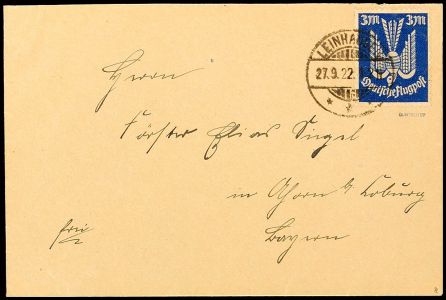 3M 3M
Deutsche Flugpost
LEINHAU
27.9.22.
Herrn
Förster Elias Siegel
in Ahorn b/ Coburg
Bayern
frei